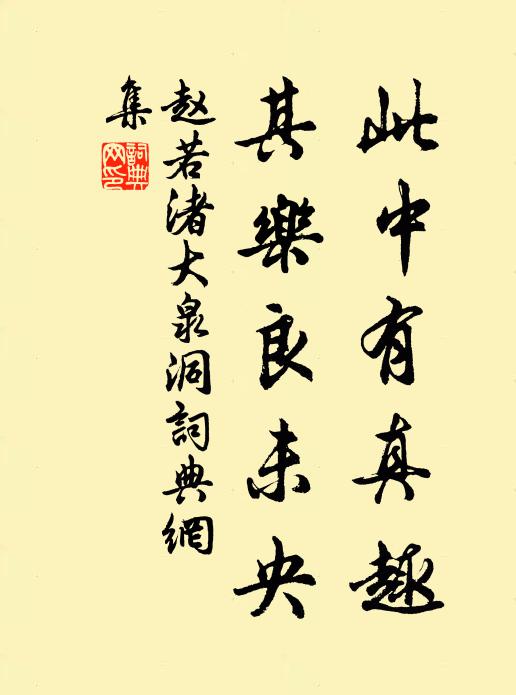 此中有真趣
其樂良未央
赵若渚大泉洞詞典網
集
詞典網印